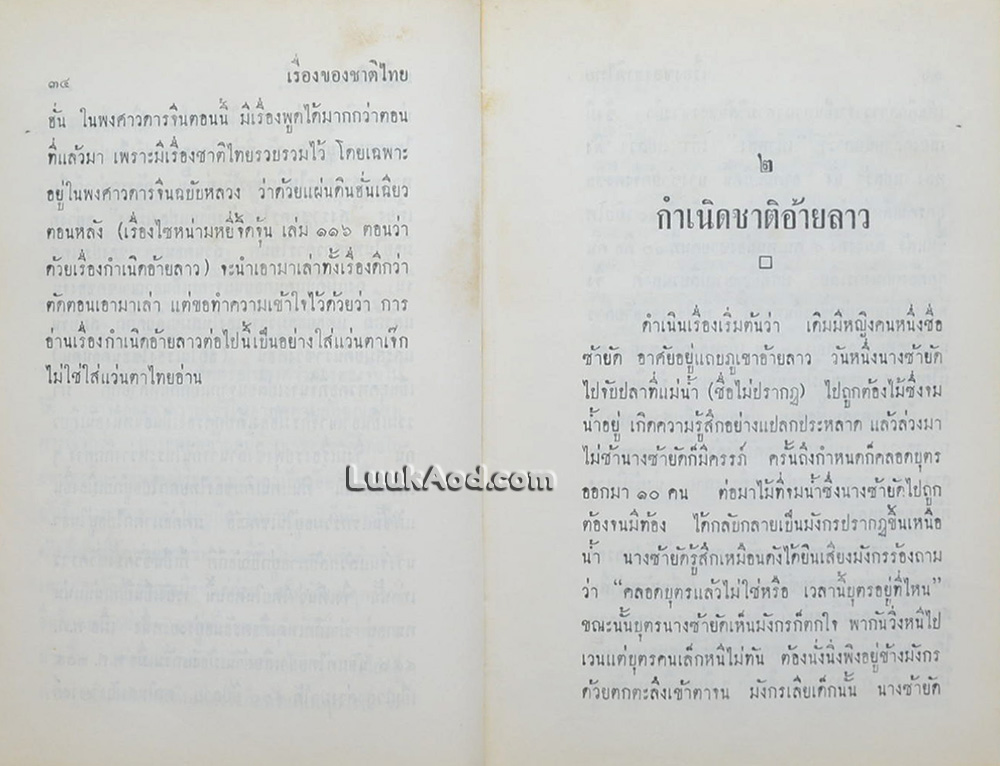 ๓๔
เรื่องของชาติไทย
ฮั่น ในพงศาวดารจีนตอนนี้ มีเรื่องพูดได้มากกว่าตอน
ที่แล้วมา เพราะมีเรื่องชาติไทยรวบรวมไว้ โดยเฉพาะ
อยู่ในพงศาวดารจีนฉบับหลวง ว่าด้วยแผ่นดินฮั่นเฉียว
ตอนหลัง (เรื่องไซหน่ามหยี่จิดจุ้น เล่ม ๑๑๖ ตอนว่า
ด้วยเรื่องกำเนิดอ้ายลาว) จะนำเอามาเล่าทั้งเรื่องดีกว่า
ตัดตอนเอามาเล่า แต่ขอทำความเข้าใจไว้ด้วยว่า การ
อ่านเรื่องกำเนิดอ้ายลาวต่อไปนี้เป็นอย่างใส่แว่นตาเจ๊ก
ไม่ใช่ใส่แว่นตาไทยอ่าน
๒
กำเนิดชาติอ้ายลาว
ดำเนินเรื่องเริ่มต้นว่า เดิมมีหญิงคนหนึ่งชื่อ
ซ้ายัด อาศัยอยู่แถบภูเขาอ้ายลาว วันหนึ่งนางซ้ายัด
ไปจับปลาที่แม่น้ำ (ชื่อไม่ปรากฏ) ไปถูกต้องไม้ซึ่งจม
น้ำอยู่ เกิดความรู้สึกอย่างแปลกประหลาด แล้วล่วงมา
ไม่ช้านางซ้ายัดก็มีครรภ์ ครั้นถึงกำหนดก็คลอดบุตร
ออกมา ๑๐ คน ต่อมาไม้ที่จมน้ำซึ่งนางซ้ายัดไปถูก
ต้องจนมีท้อง ได้กลับกลายเป็นมังกรปรากฏขึ้นเหนือ
น้ำ นางซ้ายัดรู้สึกเหมือนดังได้ยินเสียงมังกรร้องถาม
ว่า “คลอดบุตรแล้วไม่ใช่หรือ เวลานี้บุตรอยู่ที่ไหน”
ขณะนั้นบุตรนางซ้ายัดเห็นมังกรก็ตกใจ พากันวิ่งหนีไป
เว้นแต่บุตรคนเล็กหนีไม่ทัน ต้องนั่งนิ่งพิงอยู่ข้างมังกร
ด้วยตกตะลึงเข้าตาจน มังกรเลียเด็กนั้น นางซ้ายัด
LuukAod.com